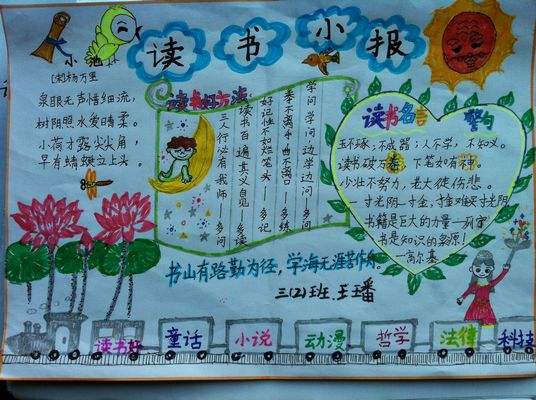 读书小报
小池
[宋]杨万里
泉眼无声惜细流,
树阴照水爱晴柔。
小荷才露尖尖角,
早有蜻蜓立上头。
读书好方法:
学问学问边学边问——多问
拳不离手曲不离口——多练
好记性不如烂笔头——多记
读书百遍其义自见——多读
三人行必有我师——多问
读书名言
警句
玉不琢,不成器;人不学,不知义。
读书破万卷,下笔如有神。
少壮不努力,老大徒伤悲。
一寸光阴一寸金,寸金难买寸光阴
书籍是巨大的力量—列宁
书是知识的泉源!
—高尔基
书山有路勤为径,学海无涯苦作舟
三(2)班、王
读书好
童话
小说
动漫
哲学
法律
科技